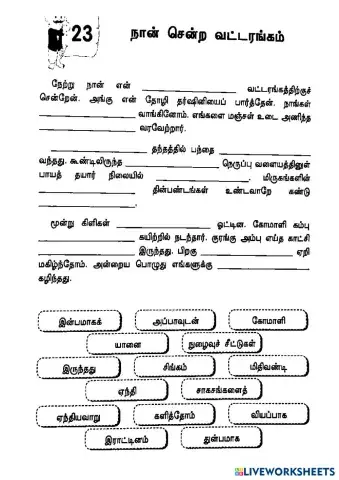 23
நான் சென்ற வட்டரங்கம்
நேற்று நான் என் ____________ வட்டரங்கத்திற்குச்
சென்றேன். அங்கு என் தோழி தர்ஷினியைப் பார்த்தேன். நாங்கள்
____________ வாங்கினோம். எங்களை மஞ்சள் உடை அணிந்த
____________ வரவேற்றார்.
____________ தந்தத்தில் பந்தை ____________
வந்தது. கூண்டிலிருந்த ____________ நெருப்பு வளையத்தினுள்
பாயத் தயார் நிலையில் ____________. மிருகங்களின்
____________ தின்பண்டங்கள் உண்டவாறே கண்டு
____________.
மூன்று கிளிகள் ____________ ஓட்டின. கோமாளி கம்பு
____________ கயிற்றில் நடந்தார். குரங்கு அம்பு எய்த காட்சி
____________ இருந்தது. பிறகு ____________ ஏறி
மகிழ்ந்தோம். அன்றைய பொழுது எங்களுக்கு ____________
கழிந்தது.
இன்பமாகக் அப்பாவுடன் கோமாளி
யானை நுழைவுச் சீட்டுகள்
இருந்தது சிங்கம் மிதிவண்டி
ஏந்தி சாகசங்களைத்
ஏந்தியவாறு களித்தோம் வியப்பாக
இராட்டினம் துன்பமாக
LIVEWORKSHEETS